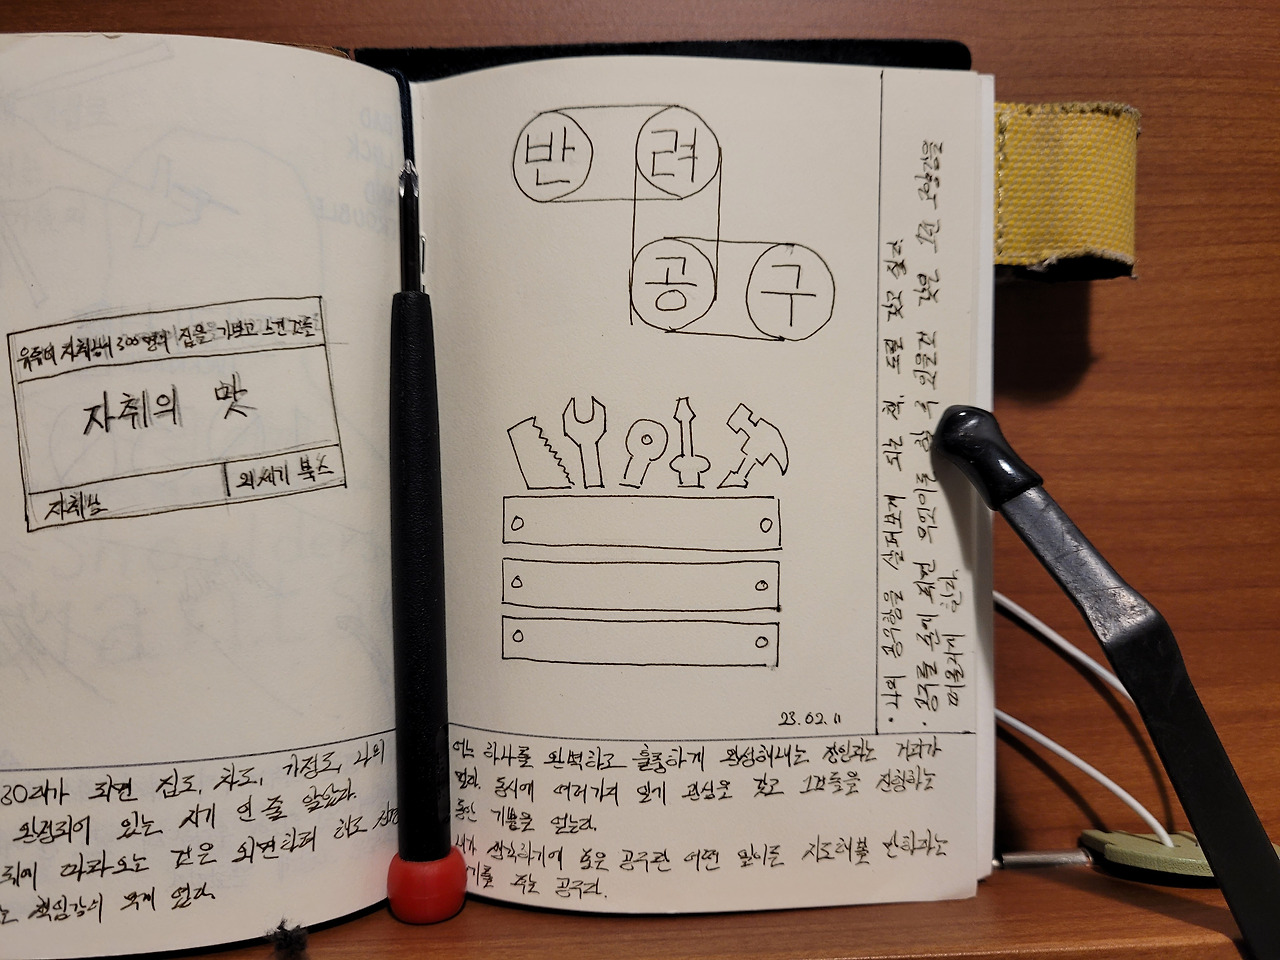 유주택 자취남이 300명의 집을 가보고 느낀 것들
자취의 맛
자취남
의 세기 북스
30대가 되면 집도, 차도, 가정도, 나의
완성되어 있는 자기 인 줄 알았다.
따라오는 것은 외면하려 하고
책임감의 무게 였다.
반려
공구
23.02.11
어느 하나를 완벽하고 훌륭하게 완성해내는 장인과는 거리가
멀다. 동시에 여러가지 일에 관심을 갖고 그것들을 진행하는
동안 기쁨을 얻는다.
내가 생각하기에 좋은 공구란 어떤 일이든 시도해볼 만하다는
용기를 주는 공구다.
· 나의 공구함을 살펴보게 되는 책. 또 갖고 싶다.
· 공구를 손에 쥐면 무엇이든 할 수 있을것 같은 그런 모양감을
떠올리게 한다.